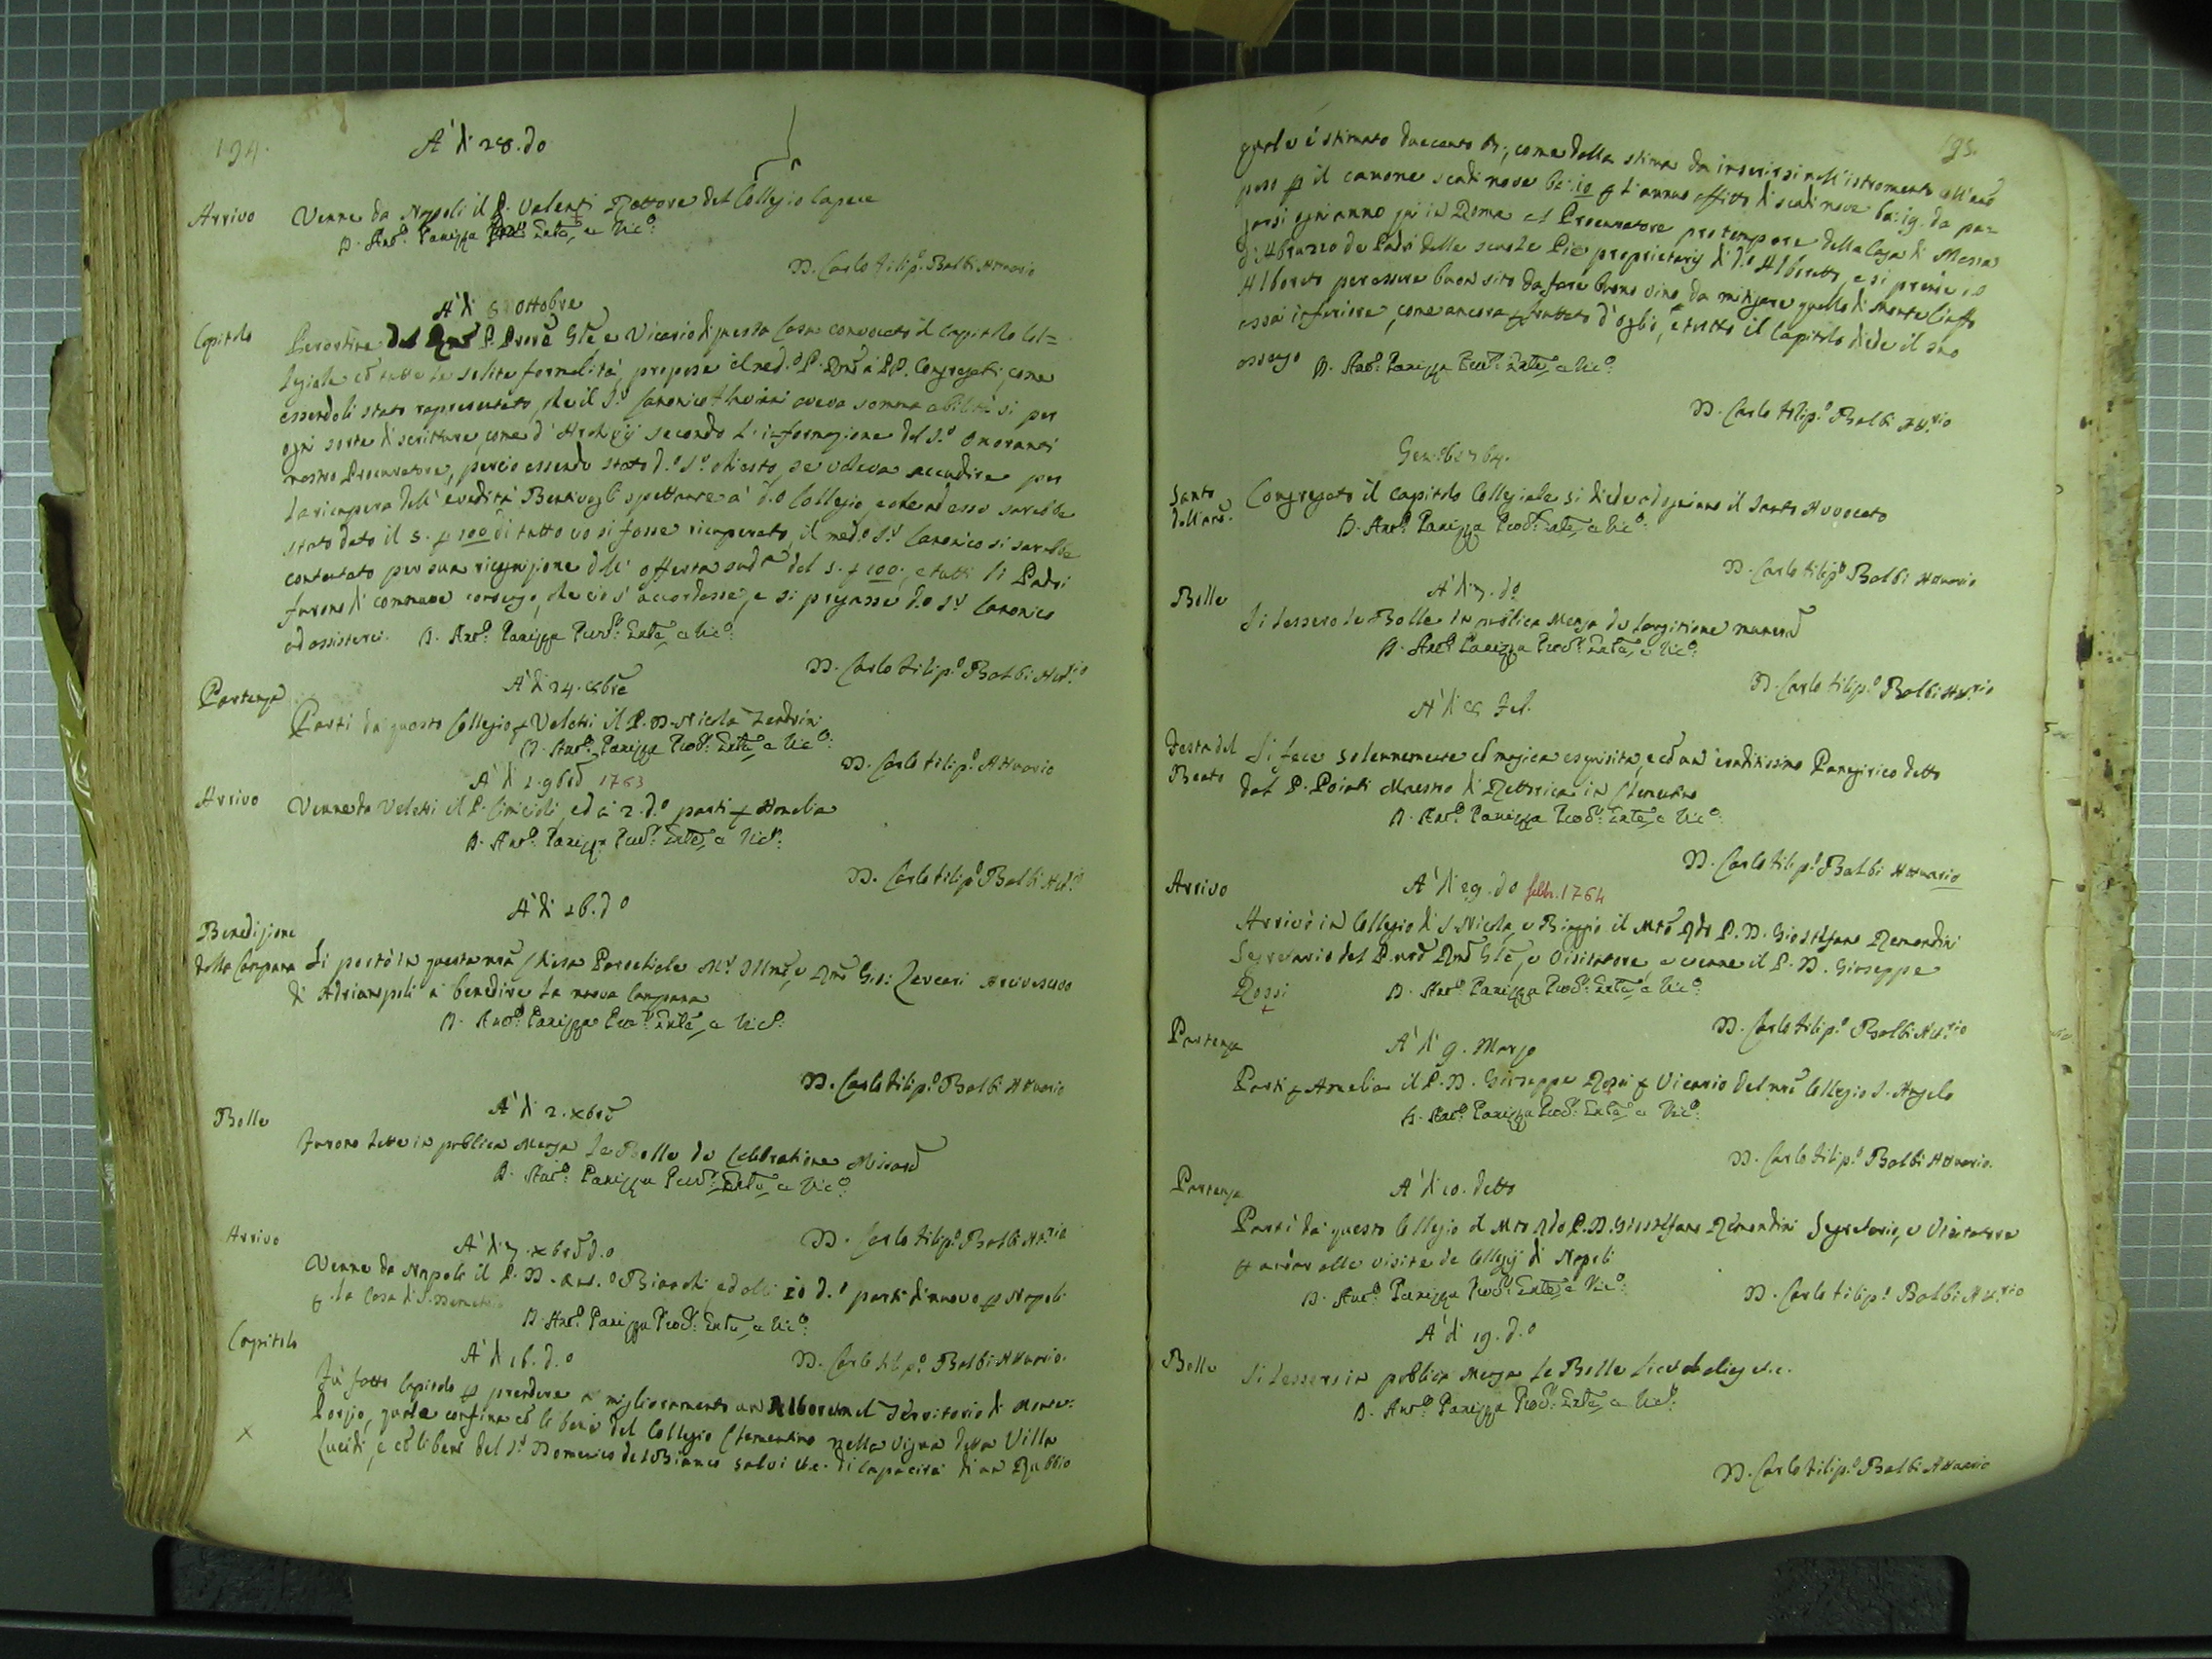 194.
A' di 28. do
Arrivo Venne da Napoli il P. Valenti Rettore del Collegio Capece
D. Anto: Panizza
D. Carlo Filip.o Balbi Attuario
A' di Ottobre
Capitolo Per ordine del Rmo P. Gle e Vicario di questa Casa convocato il Capitolo Col=
legiale cō tutte le solite formalità, propose il med.o P. Rmo a' PP. Congregati, come
essendoli stato rapresentato, che il S.r Canonico aveva somma abilità si per
ogni sorte di scritture, come d' Archivij secondo l' informazione del S.r Onoranti
nostro Procuratore, perciò essendo stato d.o S.r chiesto, se voleva accudire per
la ricupera dell' eredità Bentivogli spettante a' d.o Collegio, e che ad esso sarebbe
stato dato il 5. p 100 di tutto ciò si fosse ricuperato, il med.o S.r Canonico si sarebbe
contentato per sua ricognizione dell' offerta sud.a del 5. p 100., e tutti li Padri
furono di commune consenso, che ciò s' accordasse, e si pregasse d.o S.r Canonico
ad assisterci. D. Anto: Panizza
D. Carlo Filip.o Balbi Att.o
A' di 24. 8bre
Partenza Parti da questo Collegio p Veletri il P. D. Nicola Zendrini
D. Anto: Panizza
D. Carlo Filip.o Attuario
A' di 1. 9bre 1763
Arrivo Venne da Veletri il P. ed a' 2. d.o parti p Amelia
D. Anto: Panizza
D. Carlo Filip.o Balbi Att.o
A' di 16. d.o
Benedizione
della Campana Si portò in questa nrā Chiesa Parochiale M.r Illmo, e Rmo Gio: Arcivescovo
di Adrianopoli a benedire la nuova Campana
D. Anto: Panizza
D. Carlo Filip.o Balbi Attuario
A' di 2. xbre
Bolle Furono lette in publica Mensa le Bolle de Celebratione Missarū
D. Anto: Panizza
D. Carlo Filip.o Balbi Att.rio
A' di 7. xbre d.o
Arrivo Venne da Napoli il P. D. Ant.o Bianchi ed alli 10 d.o parti di nuovo p Napoli
p la Casa di S. Demetrio
D. Anto: Panizza
D. Carlo Filip.o Balbi Attuario.
A' di 16. d.o
Capitolo Fù fatto Capitolo p prendere a miglioramento un nel Territorio di Monte
Porzio, quale confina cō li beni del Collegio Clementino nella Vigna detta Villa
X Lucidi, e cō li beni del S.r Domenico del Bianco salvi &c. di capacità di un Rubbio
195.
quale è stimato duecento come dalla stima da inserirsi nell' istromento
peso p il canone scudi nove p l' annuo affitto di scudi nove ba: 19. da pa=
garsi ogn' anno quì in Roma al Procuratore pro tempore della Casa di Massa
d' Abruzzo de Padri delle scuole Pie proprietarij di d.o Alboreto, e si prese
Alboreto per essere buon sito da fare buono vino da mitigare quello di
assai inferiore, come ancora p fruttato d' oglio, e tutto il Capitolo diede il suo
assenso D. Anto: Panizza
D. Carlo Filip.o Balbi Att.rio
Gen: 1764.
Santo
dell'anō. Congregato il Capitolo Collegiale si diede ad ogniuno il Santo Avvocato
D. Anto: Panizza
D. Carlo Filip.o Balbi Attuario
A' di 7. do
Bolle Si lessero le Bolle in publica Mensa de largitione munerū
D. Anto: Panizza
D. Carlo Filip.o Balbi Att.rio
A' di Feb.
Festa del
Beato Si fece solennemente cō musica esquisita, e cō un eruditissimo Panegirico detto
dal P. Maestro di Rettorica in Clementino
D. Anto: Panizza
D. Carlo Filip.o Balbi Attuario
A' di 29. do febbr. 1764
Arrivo Arrivò in Collegio di S. Nicola, e Biaggio il Mto Rdo P. D. Gio: Stefano Remondini
Segretario del P. nrō Rmō Glē, e Visitatore, e venne il P. D. Giuseppe
Rossi D. Anto: Panizza
D. Carlo Filip.o Balbi Att.rio
A' di 9. Marzo
Partenza Parti p Amelia il P. D. Giuseppe Rossi p Vicario del nrō Collegio S. Angelo
D. Anto: Panizza
D. Carlo Filip.o Balbi Attuario.
A' di 10. detto
Partenza Parti da questo Collegio il Mto Rdo P. D. Gio: Stefano Remondini Segretario, e Visitatore
p andar alle visite de Collegij di Napoli
D. Anto: Panizza
D. Carlo Filip.o Balbi Att.rio
A' di 19. d.o
Bolle Si lessero in publica Mensa le Bolle &c.
D. Anto: Panizza
D. Carlo Filip.o Balbi Attuario